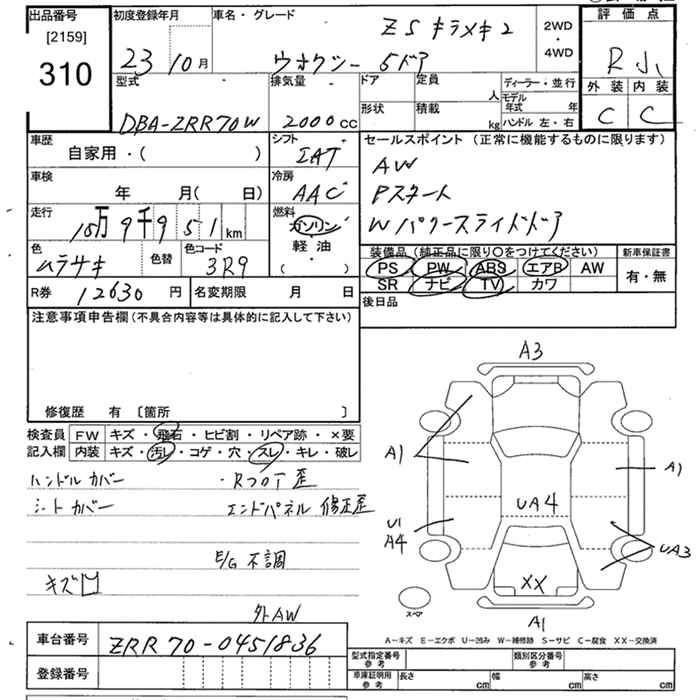 出品番号 初度登録年月 車名・グレード 評価点
[2159] 23 10月 ZS キラメキ2 2WD・4WD
310 R 小
型式 排気量 ドア 定員 人 ディーラー・並行 外装 内装
形状 積載 kg モデル年式 年 C C
DBA-ZRR70W 2000cc ハンドル 左・右
車歴 シフト セールスポイント(正常に機能するものに限ります)
自家用・( ) IAT AW
車検 冷房 Pスタート
年 月( 日) AAC Wパワースライドドア
走行 燃料
10万9千951km ガソリン
軽油
( ・ )
色 色替 色コード 装備品(純正品に限り〇をつけてください) 新車保証書
ムラサキ 3R9 PS PW ABS エアB AW 有・無
SR ナビ TV カワ
R券 12630円 名変期限 月 日 後日品
注意事項申告欄(不具合内容等は具体的に記入して下さい)
修復歴 有 〔箇所 〕
検査員 FW キズ・飛石・ヒビ割・リペア跡・×要
記入欄 内装 キズ・汚レ・コゲ・穴・スレ・キレ・破レ
ハンドルカバー ・Rフロア歪
シートカバー エンドパネル 修正歪
E/G 不調
キズ
外AW
A3
A1
A1
UA4
U1
A4
UA3
XX
スペア
A1
A-キズ E-エクボ U-凹み W-補修跡 S-サビ C-腐食 XX-交換済
車台番号 ZRR70-0451836
型式指定番号 参考 類別区分番号 参考
登録番号
車庫証明用 参考 長さ cm 幅 cm 高さ cm